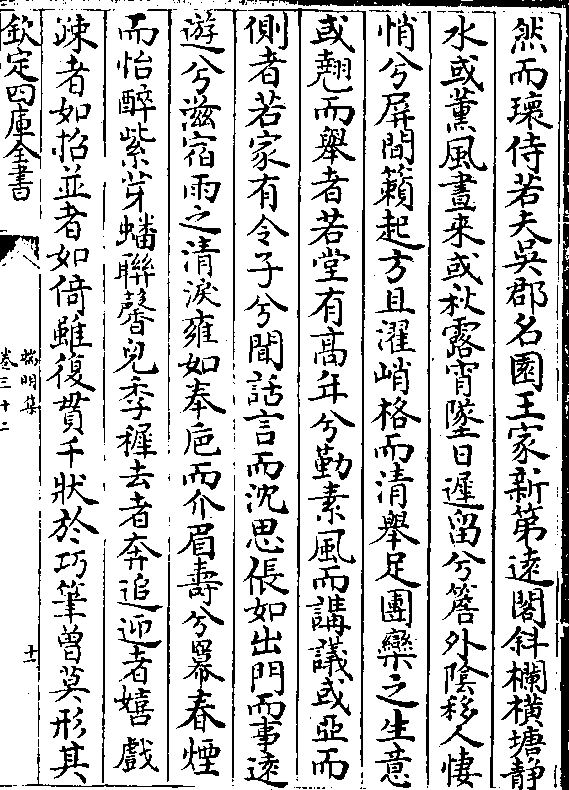 然而環侍若夫吳郡名園王家新第逺閣斜欄横塘静
水或薫風晝来或秋露宵墜日遲留兮簷外隂移人悽
悄兮屏間籟起方且濯峭格而清舉足團欒之生意
或翹而舉者若堂有高年兮勤素風而講議或亞而
側者若家有令子兮聞話言而沈思倀如出門而事逺
遊兮滋宿雨之清淚雍如奉巵而介眉壽兮羃春煙
而怡醉紫芽蟠聯馨兒季穉去者奔追迎者嬉戲
疎者如招並者如倚雖復貫千狀於巧筆曾莫形其
欽定四庫全書
端明集
卷三十二
十一